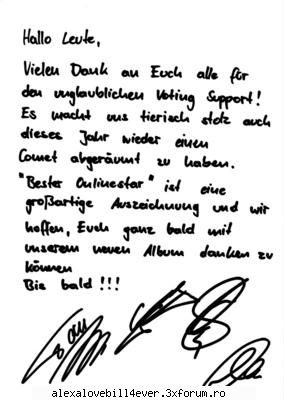 Hallo Leute,
Vielen Dank an Euch alle für
den unglaublichen Voting Support!
Es macht uns tierisch stolz auch
dieses Jahr wieder einen
Comet abgeräumt zu haben.
"Bester Onlinestar" ist eine
großartige Auszeichnung und wir
hoffen, Euch ganz bald mit
unserem neuen Album danken zu
können
Bis bald !!!
alexalovebill4ever.3xforum.ro